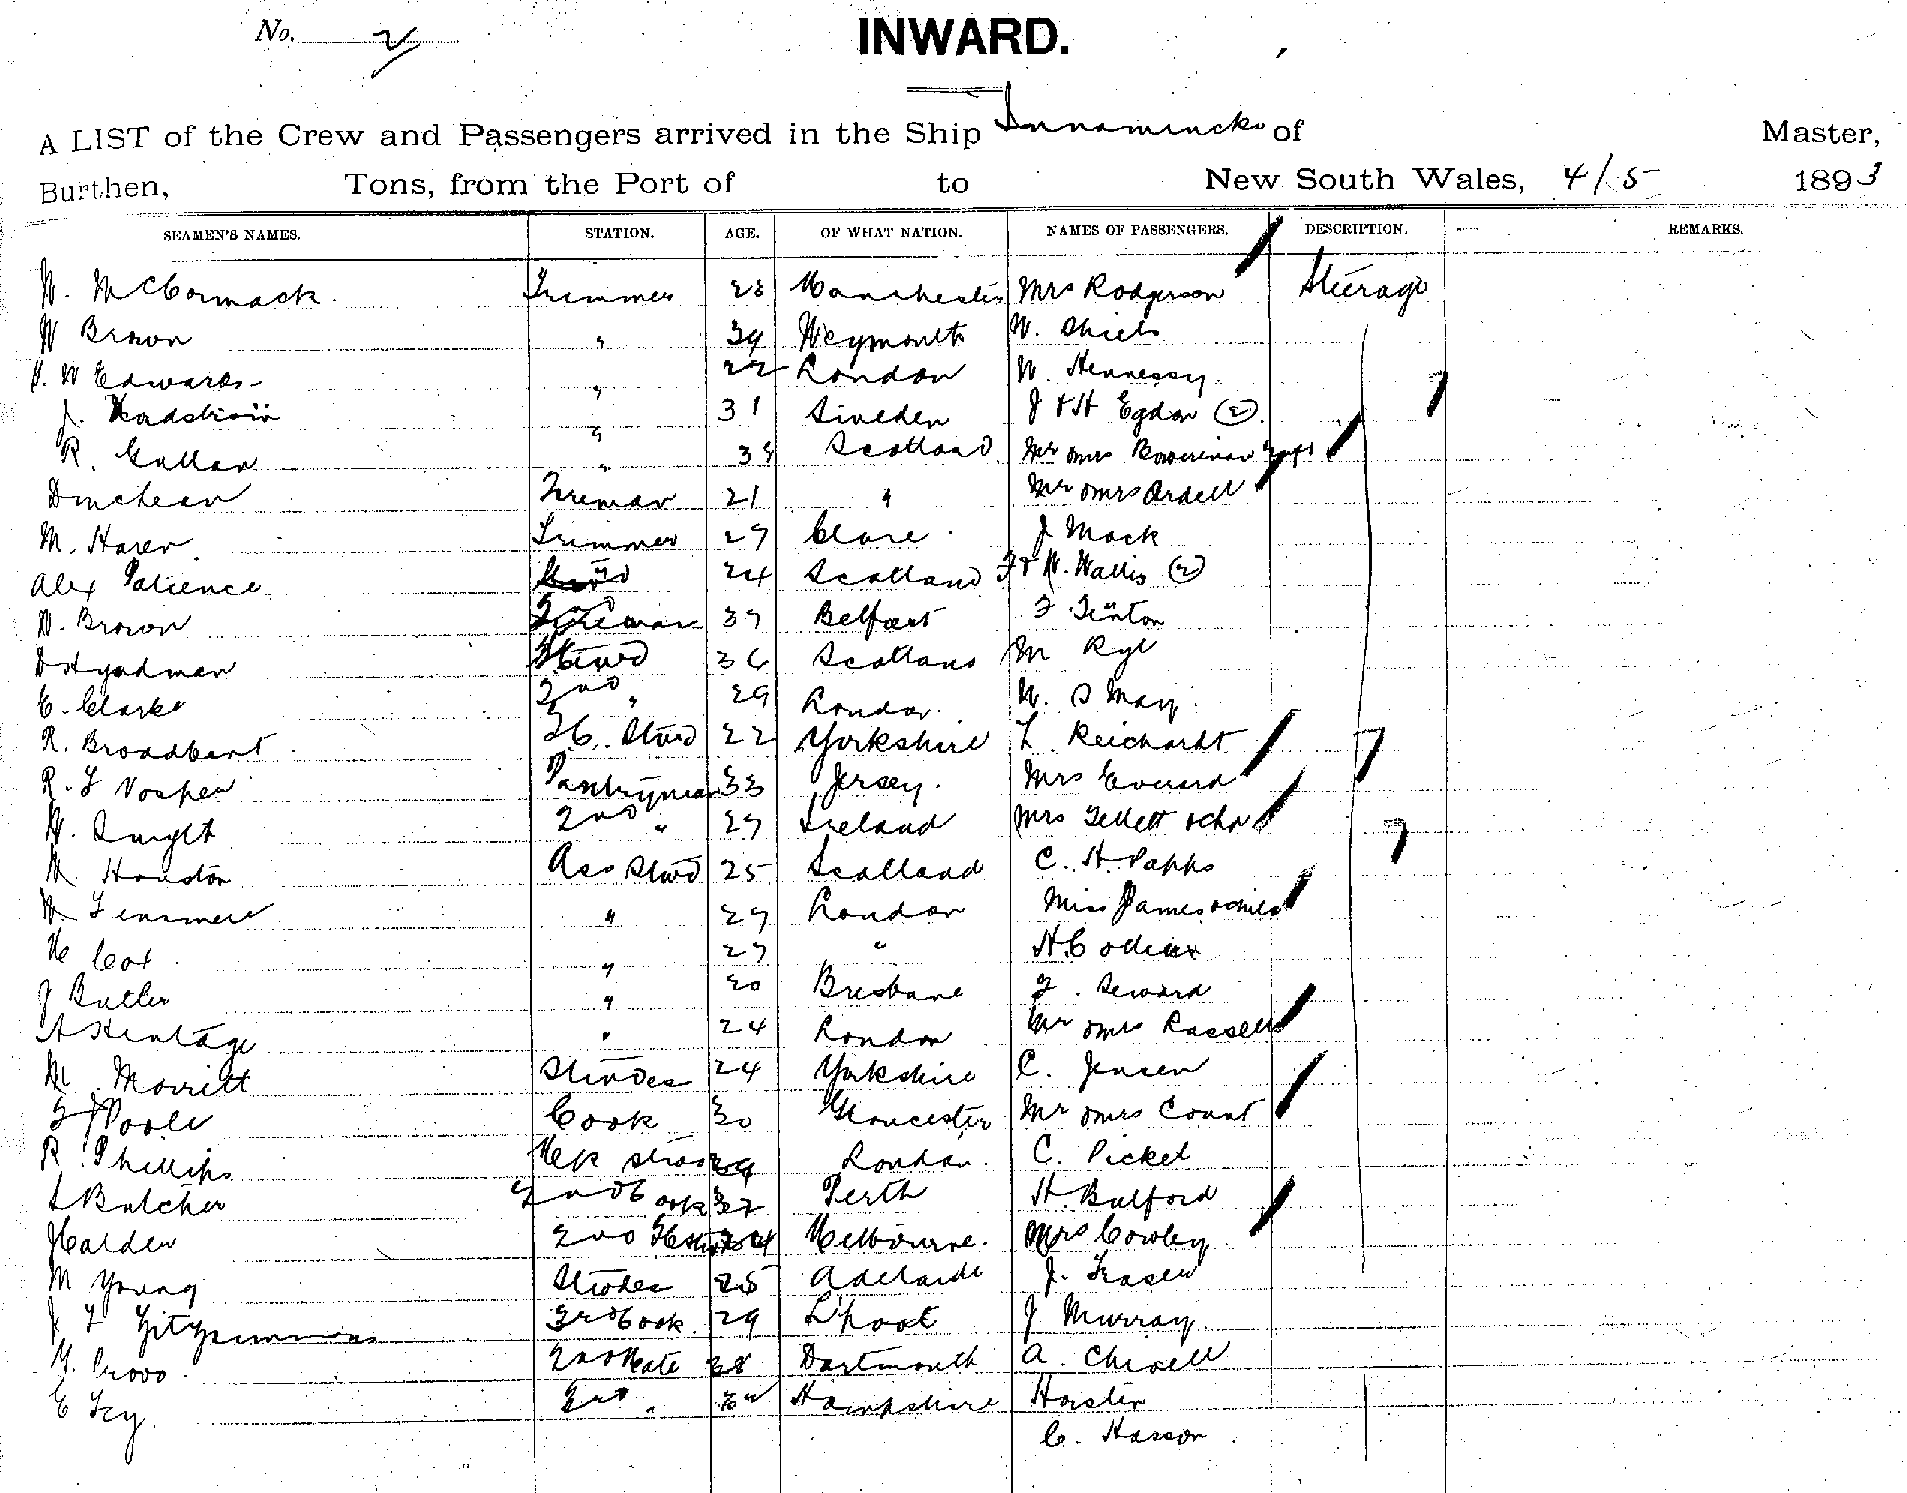 No. 2
INWARD.
A LIST of the Crew and Passengers arrived in the Ship Innamincka of Master,
Burthen, Tons, from the Port of to New South Wales, 4/5 1893
SEAMEN'S NAMES. STATION. AGE. OF WHAT NATION. NAMES OF PASSENGERS. DESCRIPTION. REMARKS.
W. McCormack Trimmer 23 Manchester Mrs Rodgerson Steerage
W Brown " 39 Weymouth W. Shiels
J. W Edwards " 22 London W. Hennessy
J. " 31 Sweden J & H Egdon (2)
R. Gullan " 38 Scotland Mr & Mrs
Fireman 21 " Mr & Mrs Ardell
M. Haren Trimmer 27 Clare J Mack
Alex Patience 24 Scotland F & W. Wallis (2)
W. Brown Fireman 37 Belfast F Finton
Stewd 36 Scotland M Ryl
C. Clarke 2nd " 29 London W. S May
R. Broadbent F C. Stwd 22 Yorkshire L Reichardt
R. F Vosper Pantryman 33 Jersey. Mrs Everard
2nd " 27 Ireland Mrs Tellett & chn
Houston Ass Stwd 25 Scotland C. H. Papps
" 27 London Miss James & child
Cox " 27 " H Collins
J Butler " 20 Brisbane F. Seward
A Hentage " 24 London Mr & Mrs Russell
M. Morritt Stwdes 24 Yorkshire C. Jensen
Poole Cook 30 Gloucester Mr & Mrs Count
R. Phillips 29 London. C. Pickel
S Butcher 2nd Cook 37 Perth H. Balford
Halden 2nd 24 Melbourne. Mrs Cowley
M Young Stwdes 25 Adelaide J. Fraser
J F Fitzsimmons 3rd Cook 29 L'pool J Murray
2nd Mate 38 Dartmouth A. Chisell
E Fry 3rd " Hampshire Horsten
C. Hasson